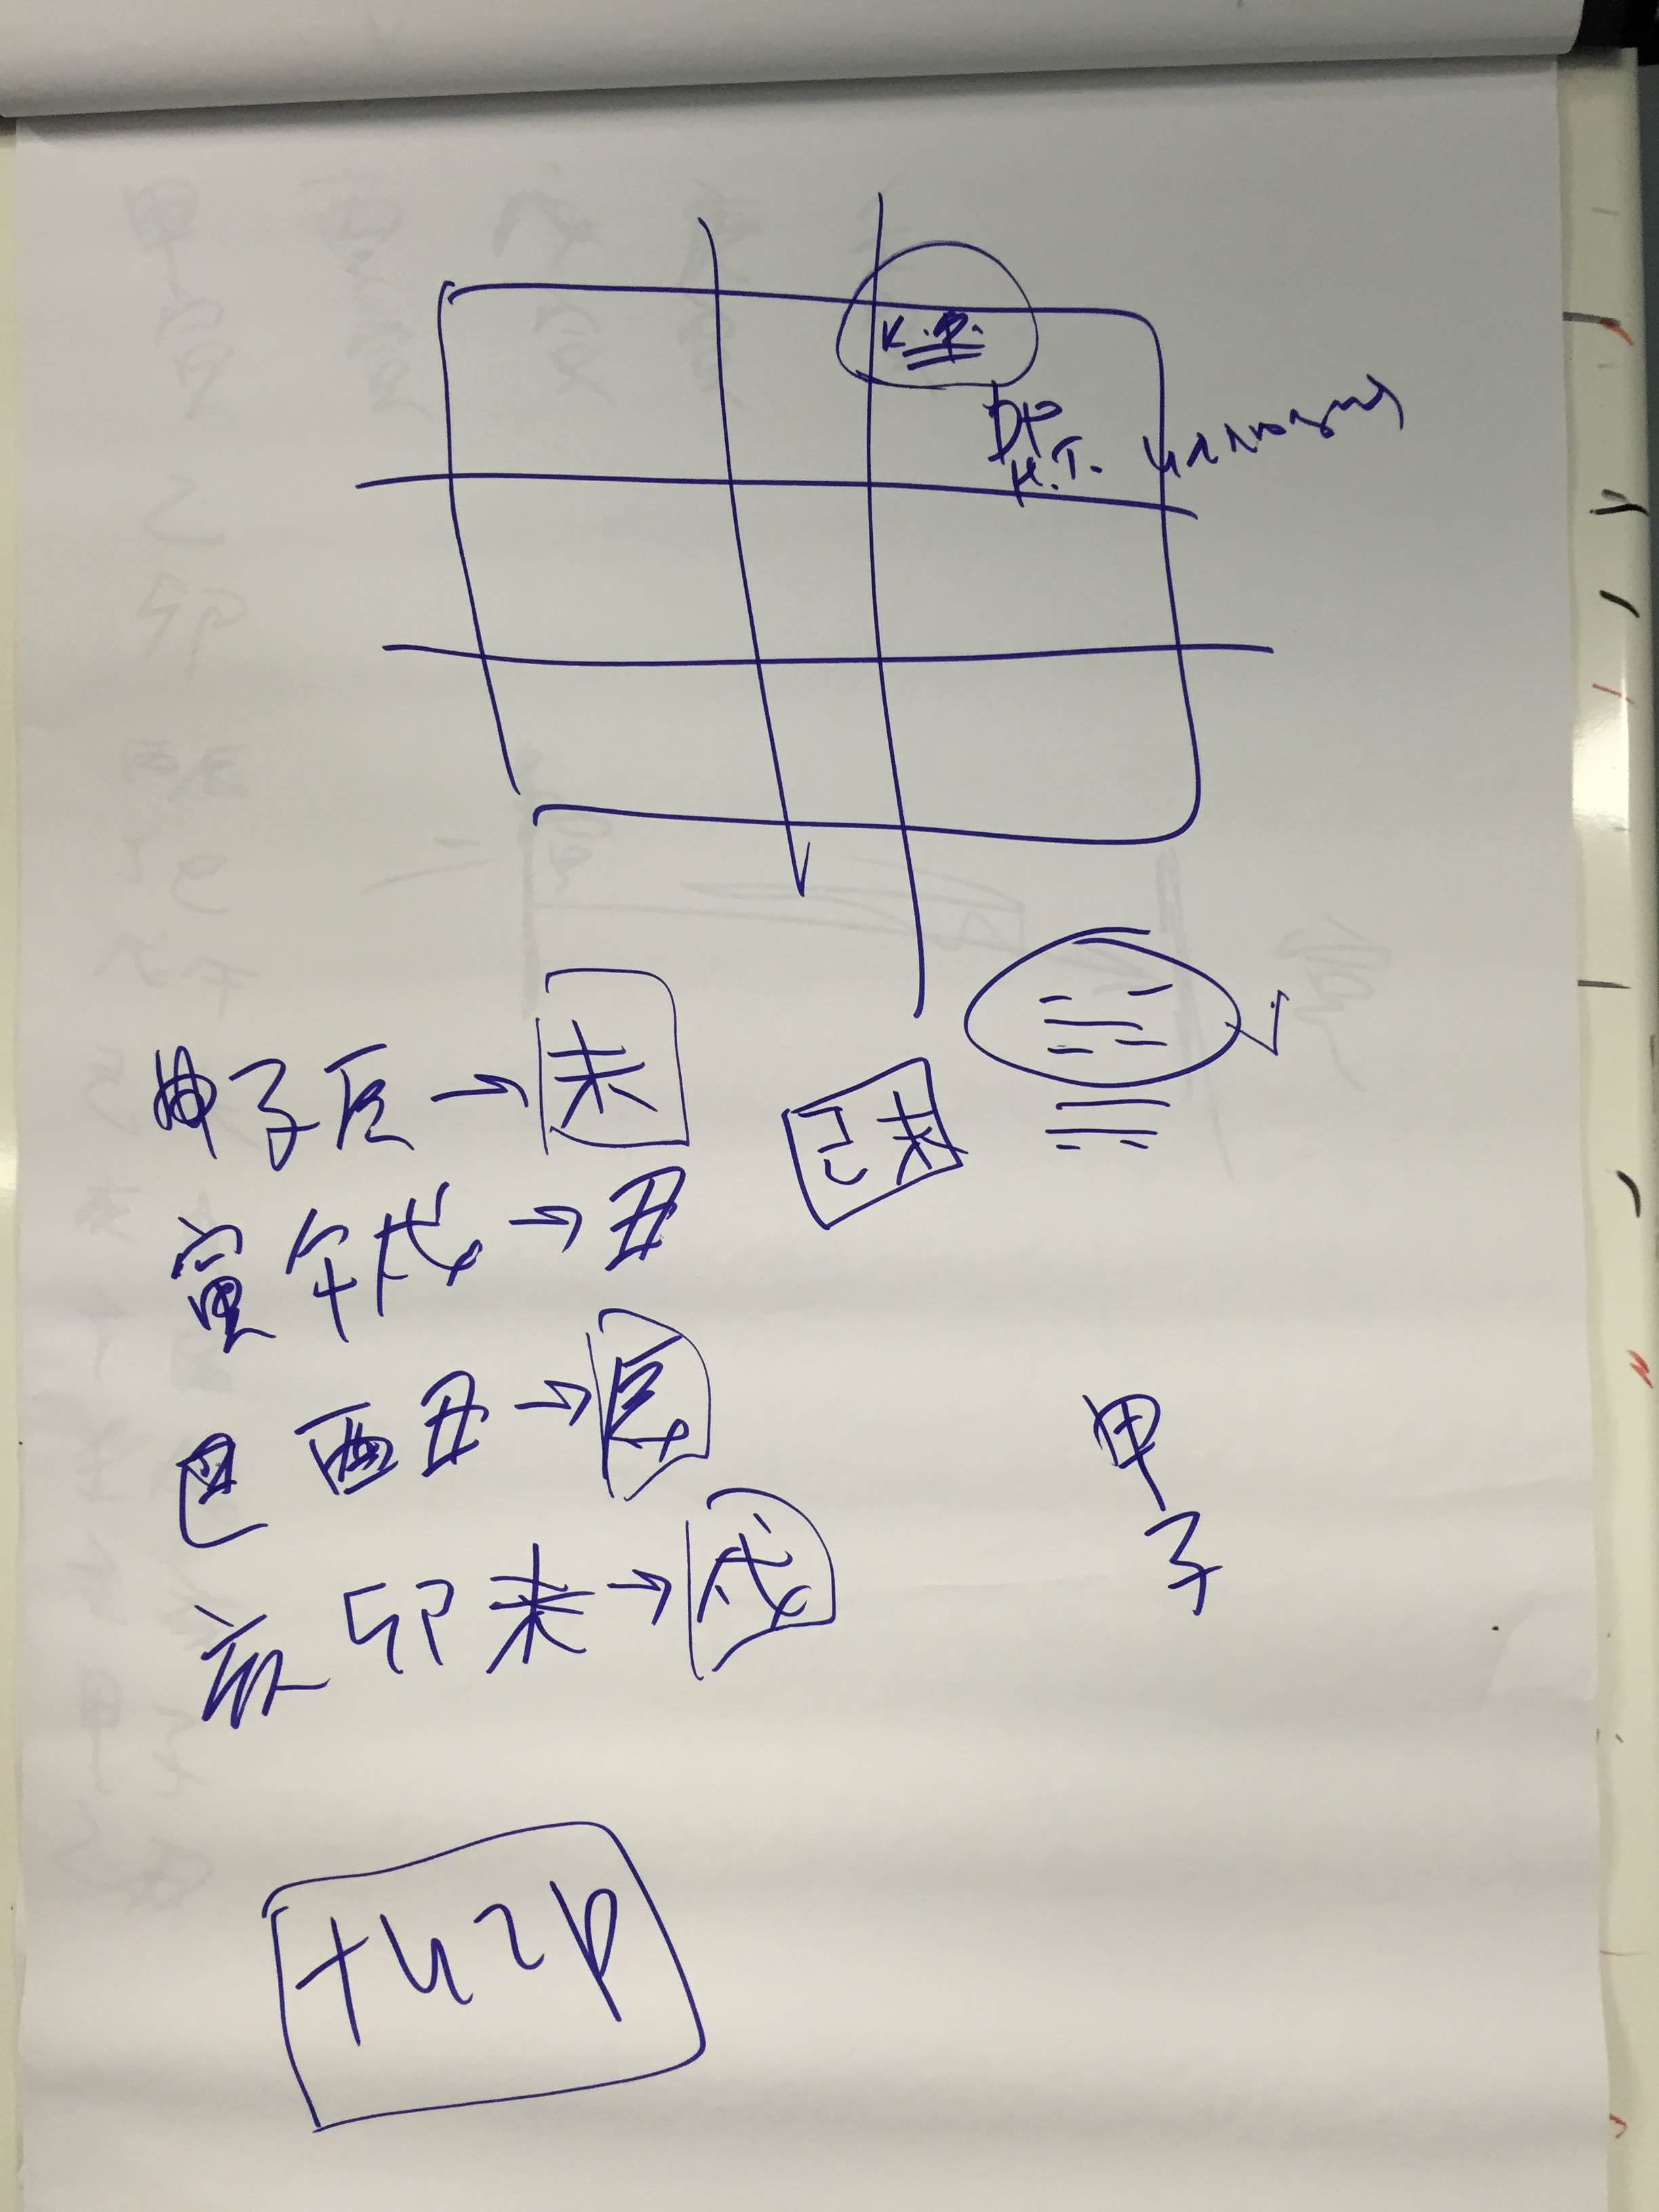 К.Ф.
DP
К.Т. иллюзия
申子辰→未
己未
寅午戌→丑
巳酉丑→辰
亥卯未→戌
甲
子